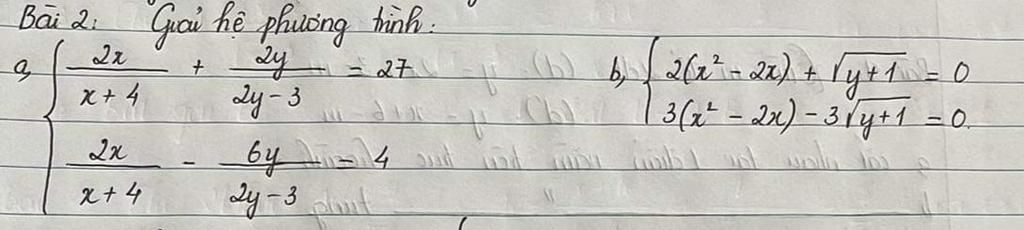 Bài 2: Giải hệ phương trình:
a, { 2x/(x+4) + 2y/(2y-3) = 27
2x/(x+4) - 6y/(2y-3) = 4
b, { 2(x² - 2x) + √(y+1) = 0
3(x² - 2x) - 3√(y+1) = 0.